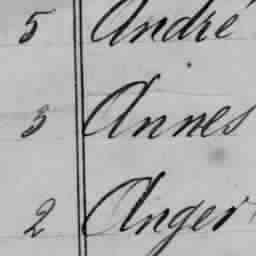 5 André
3 Annes
2 Anger